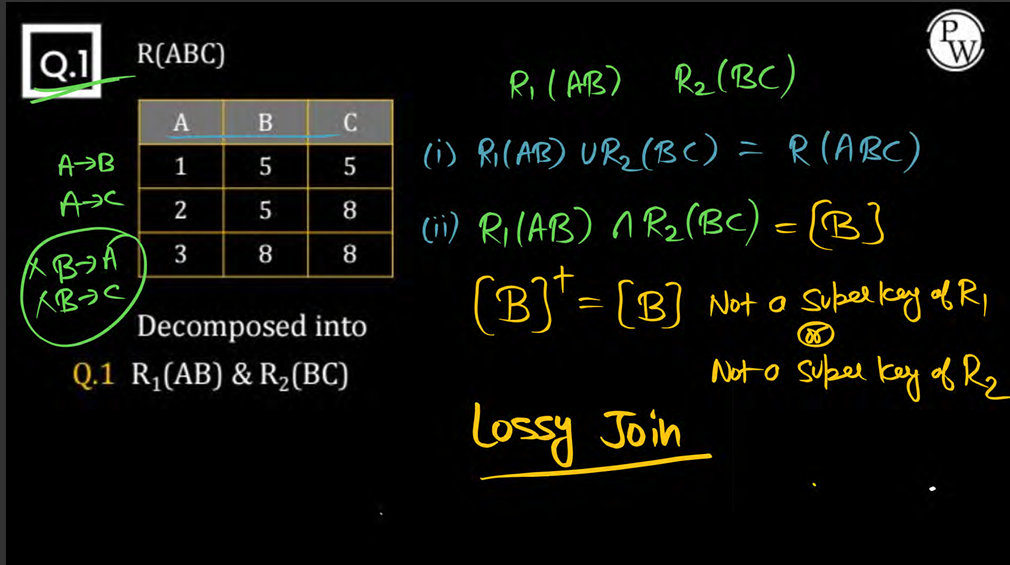 Q.1
R(ABC)
PW
A B C
1 5 5
2 5 8
3 8 8
A→B
A→C
× B→A
× B→C
Decomposed into
Q.1 R₁(AB) & R₂(BC)
R₁(AB) R₂(BC)
(i) R₁(AB) ∪ R₂(BC) = R(ABC)
(ii) R₁(AB) ∩ R₂(BC) = [B]
[B]⁺ = [B] Not a Super key of R₁
or
Not a Super key of R₂
Lossy Join